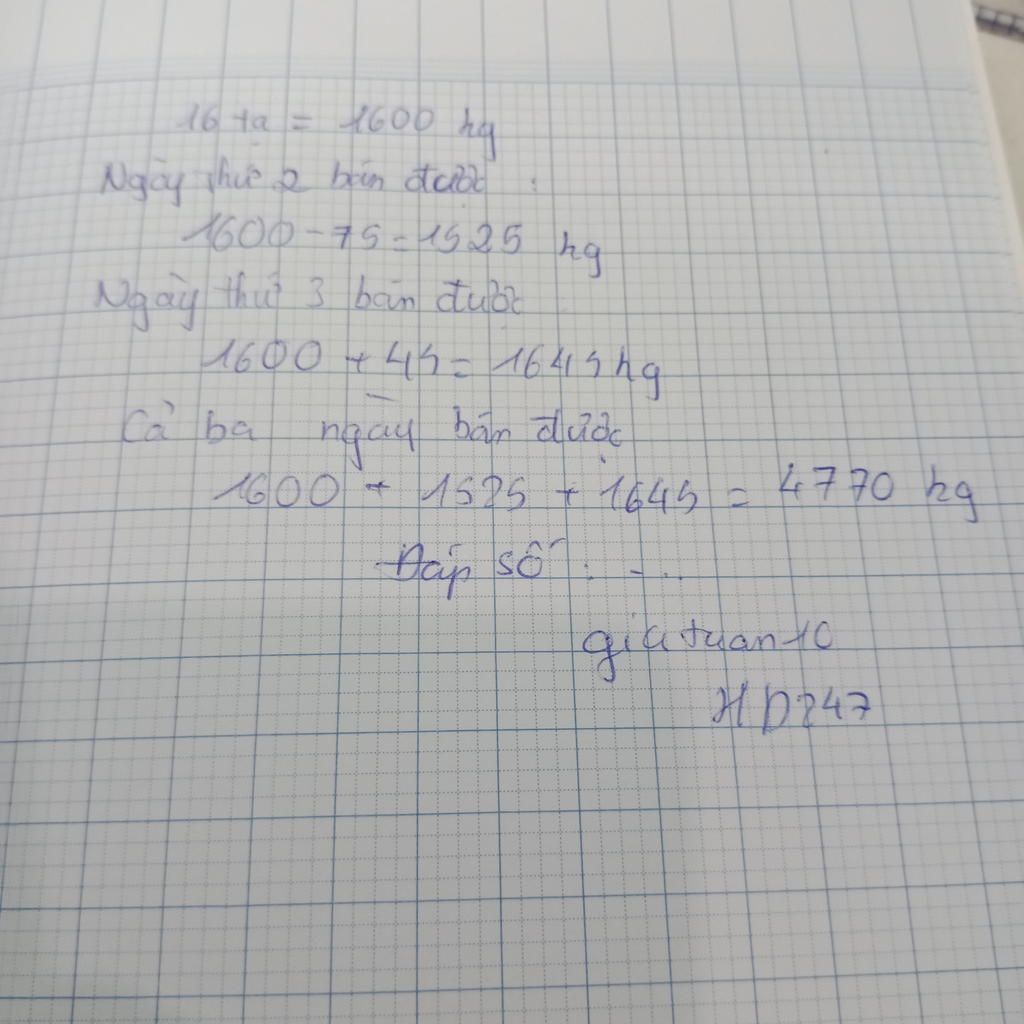 16 tạ = 1600 kg
Ngày thứ 2 bán được :
1600 - 75 = 1525 kg
Ngày thứ 3 bán được
1600 + 45 = 1645 kg
Cả ba ngày bán được
1600 + 1525 + 1645 = 4770 kg
Đáp số : ...
giatuan10
HD247